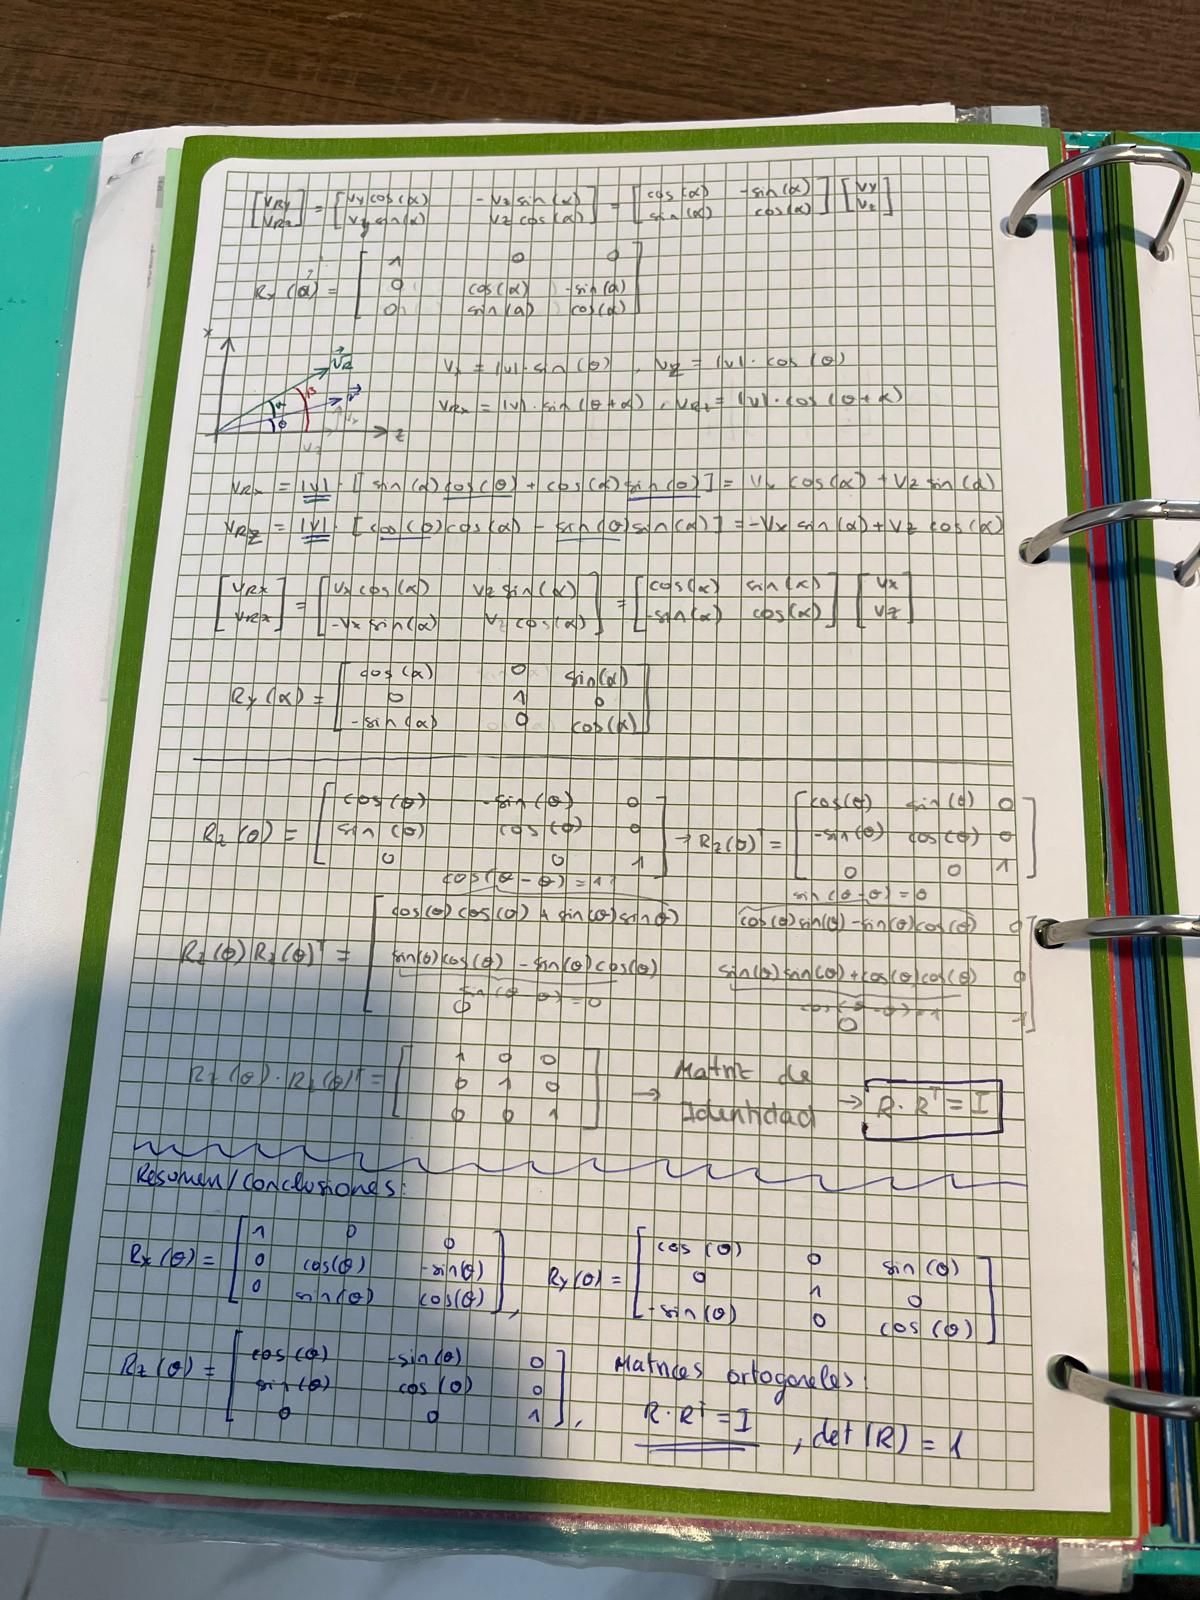 [VRy VRz] = [Vy cos(α) -Vz sin(α) Vy sin(α) Vz cos(α)] = [cos(α) -sin(α) sin(α) cos(α)] [Vy Vz]
Rx(α) = [1 0 0
0 cos(α) -sin(α)
0 sin(α) cos(α)]
x
VR
Vx = |V|·sin(θ), Vz = |V|·cos(θ)
α β V
VRx = |V|·sin(θ+α), VRz = |V|·cos(θ+α)
θ Vx z
Vz
VRx = |V|·[sin(α)cos(θ) + cos(α)sin(θ)] = Vx cos(α) + Vz sin(α)
VRz = |V|·[cos(θ)cos(α) - sin(θ)sin(α)] = -Vx sin(α) + Vz cos(α)
[VRx VRz] = [Vx cos(α) Vz sin(α) -Vx sin(α) Vz cos(α)] = [cos(α) sin(α) -sin(α) cos(α)] [Vx Vz]
Ry(α) = [cos(α) 0 sin(α)
0 1 0
-sin(α) 0 cos(α)]
Rz(θ) = [cos(θ) -sin(θ) 0 sin(θ) cos(θ) 0 0 0 1] → Rz(θ)ᵀ = [cos(θ) sin(θ) 0 -sin(θ) cos(θ) 0 0 0 1]
cos(θ-θ) = 1 sin(θ-θ) = 0
Rz(θ)Rz(θ)ᵀ = [cos(θ)cos(θ) + sin(θ)sin(θ) cos(θ)sin(θ) - sin(θ)cos(θ) 0
sin(θ)cos(θ) - sin(θ)cos(θ) sin(θ)sin(θ) + cos(θ)cos(θ) 0
sin(θ-θ) = 0 cos(θ-θ) = 1
0 0 1]
Rz(θ)·Rz(θ)ᵀ = [1 0 0 0 1 0 0 0 1] → Matriz de Identidad → R·Rᵀ = I
Resumen/Conclusiones:
Rx(θ) = [1 0 0 0 cos(θ) -sin(θ) 0 sin(θ) cos(θ)], Ry(θ) = [cos(θ) 0 sin(θ) 0 1 0 -sin(θ) 0 cos(θ)]
Rz(θ) = [cos(θ) -sin(θ) 0 sin(θ) cos(θ) 0 0 0 1], Matrices ortogonales:
R·Rᵀ = I, det(R) = 1